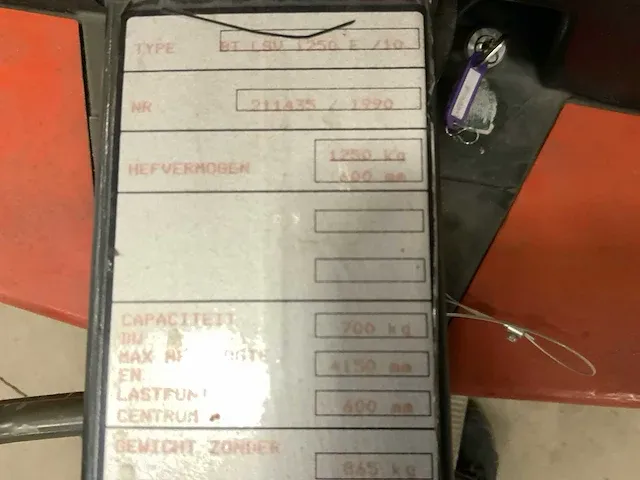 TYPE BT LSV 1250 E /10
NR 211435 / 1990
1250 kg
HEFVERMOGEN 600 mm
CAPACITEIT 700 kg
BIJ
MAX
EN 4150 mm
LASTPUNT 600 mm
CENTRUM
GEWICHT ZONDER
865 kg